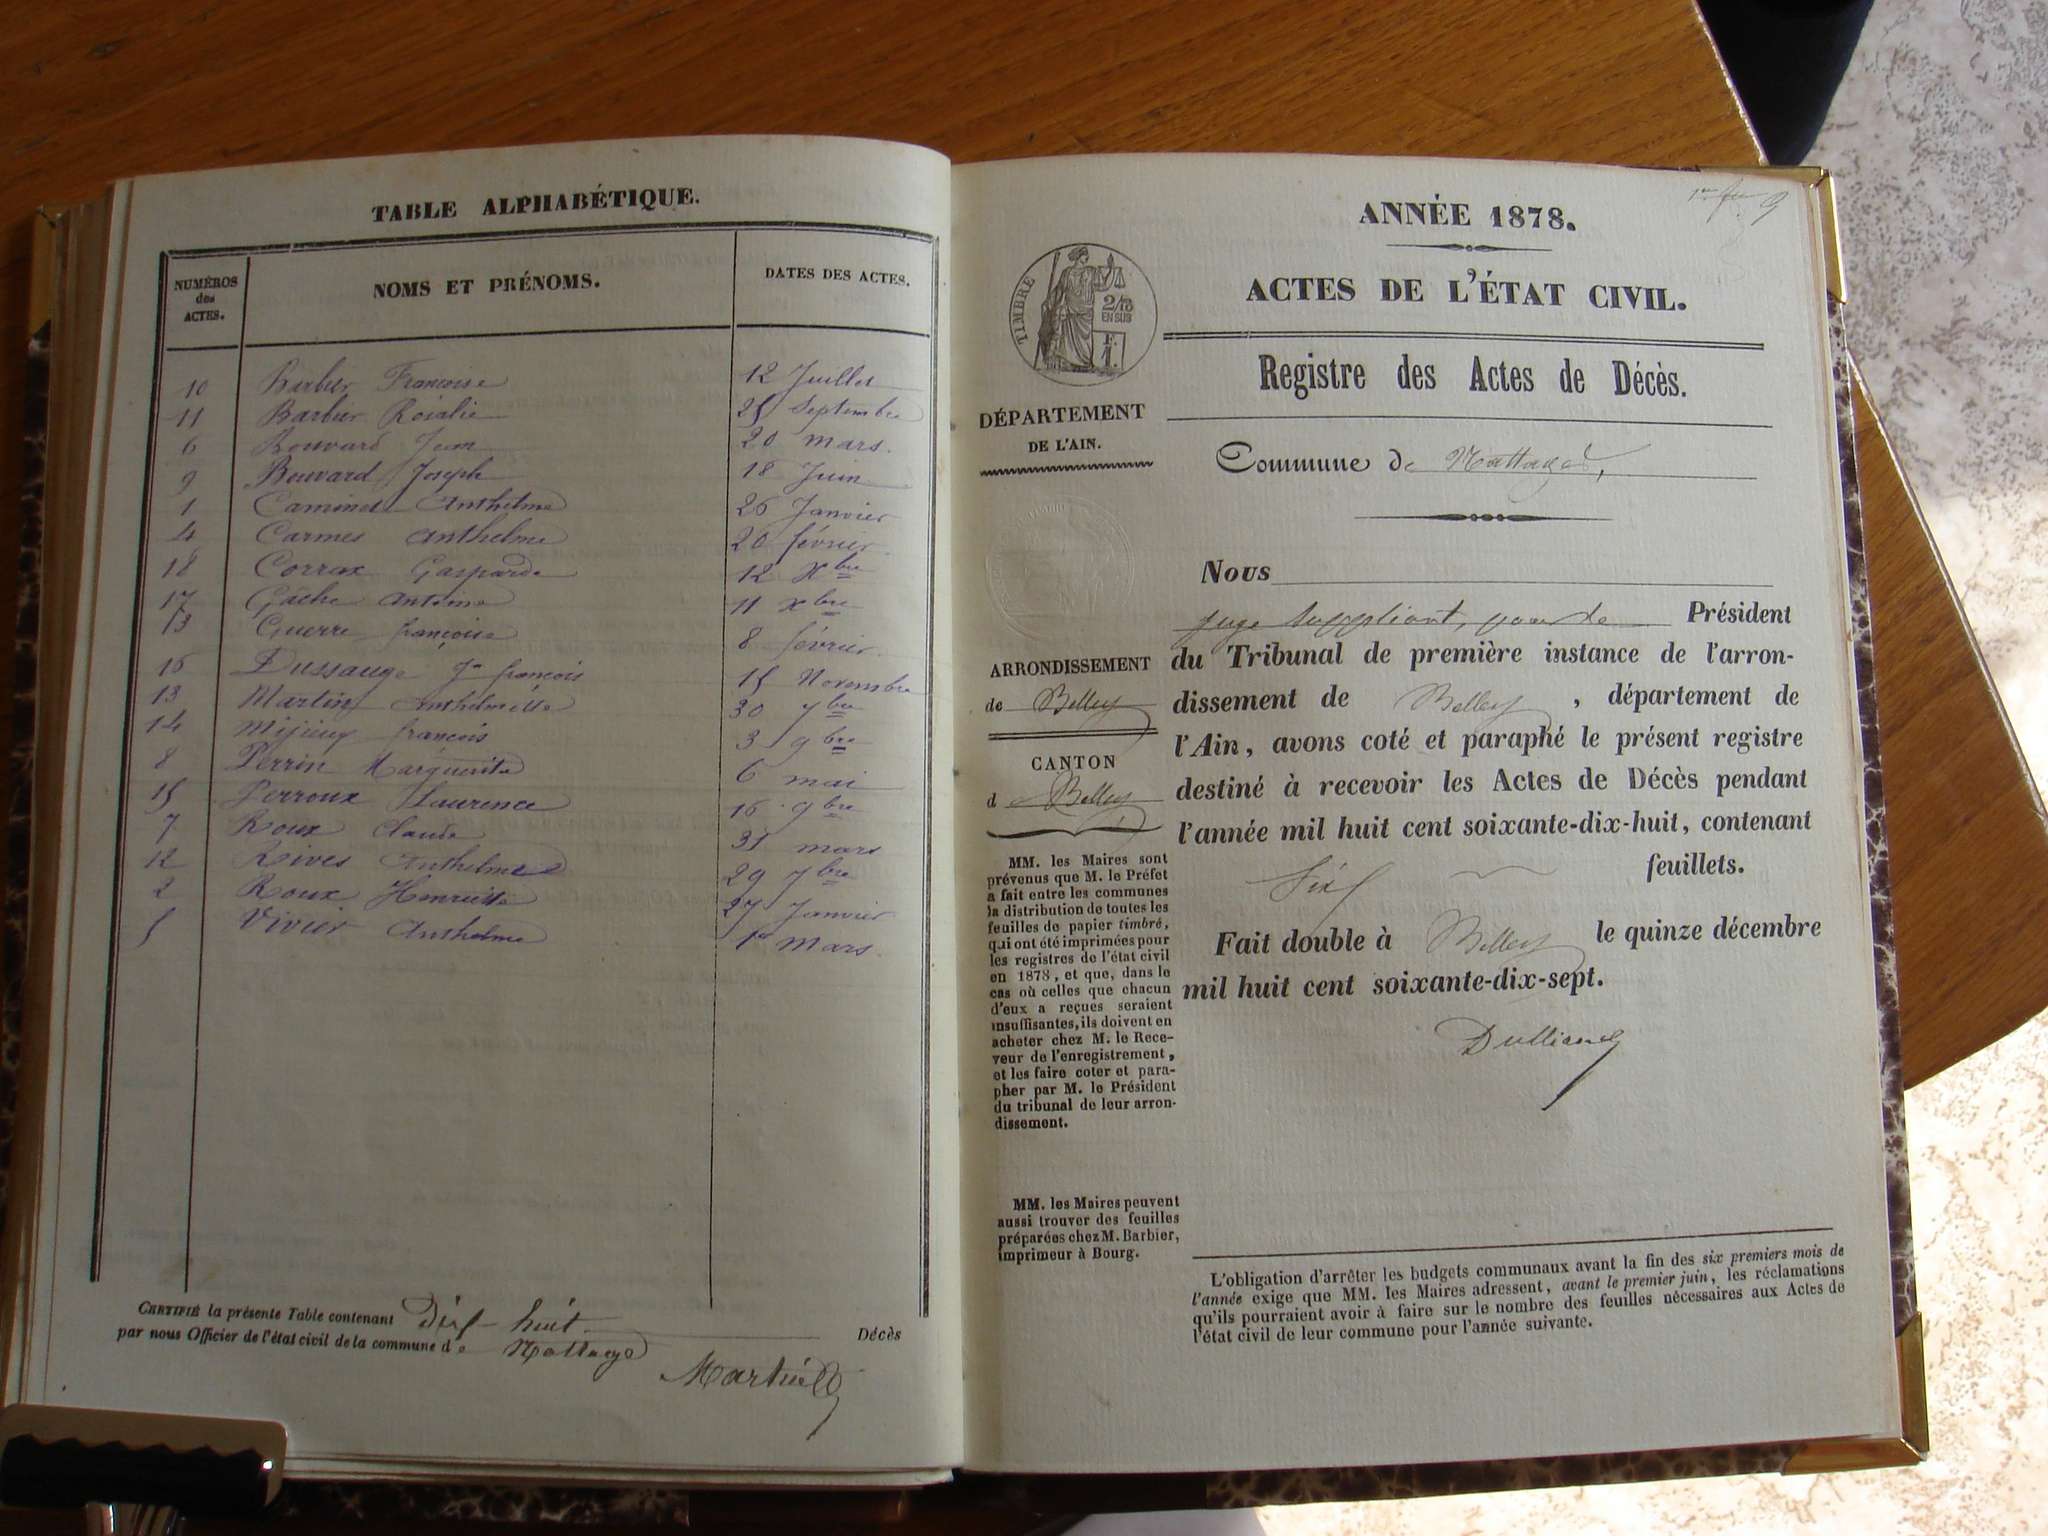 TABLE ALPHABÉTIQUE.
NUMÉROS des ACTES. NOMS ET PRÉNOMS. DATES DES ACTES.
10 Barbier Françoise 12 Juillet
11 Barbier Rosalie 25 Septembre
6 Bouvard Jean 20 mars.
9 Bouvard Joseph 18 Juin
1 Caminet Anthelme 26 Janvier
4 Carmes Anthelme 20 février
18 Corrax Gasparde 12 Xbre
17 Gâche Antoine 11 Xbre
Guerre françoise 8 février
16 Dussauge Jn françois 15 Novembre
13 Martin Anthelmette 30 7bre
14 françois 3 9bre
8 Perrin Marguerite 6 mai
15 Perroux Laurence 16 9bre
7 Roux Claude 31 mars
12 Rives Anthelme 29 7bre
2 Roux Henriette 27 Janvier
5 Vivier Anthelme 1er mars.
CERTIFIÉ la présente Table contenant Dix-huit Décès
par nous Officier de l'état civil de la commune de Nattages
ANNÉE 1878.
ACTES DE L'ÉTAT CIVIL.
TIMBRE
2/10
EN SUS
Registre des Actes de Décès.
DÉPARTEMENT
DE L'AIN.
Commune de Nattages,
Nous
juge suppléant, pour le Président
du Tribunal de première instance de l'arron-
dissement de Belley, département de
l'Ain, avons coté et paraphé le présent registre
destiné à recevoir les Actes de Décès pendant
l'année mil huit cent soixante-dix-huit, contenant
Six feuillets.
Fait double à Belley le quinze décembre
mil huit cent soixante-dix-sept.
ARRONDISSEMENT
de Belley
CANTON
de Belley
MM. les Maires sont
prévenus que M. le Préfet
a fait entre les communes
la distribution de toutes les
feuilles de papier timbré,
qui ont été imprimées pour
les registres de l'état civil
en 1878, et que, dans le
cas où celles que chacun
d'eux a reçues seraient
insuffisantes, ils doivent en
acheter chez M. le Rece-
veur de l'enregistrement,
et les faire coter et para-
pher par M. le Président
du tribunal de leur arron-
dissement.
MM. les Maires peuvent
aussi trouver des feuilles
préparées chez M. Barbier,
imprimeur à Bourg.
L'obligation d'arrêter les budgets communaux avant la fin des six premiers mois de
l'année exige que MM. les Maires adressent, avant le premier juin, les réclamations
qu'ils pourraient avoir à faire sur le nombre des feuilles nécessaires aux Actes de
l'état civil de leur commune pour l'année suivante.